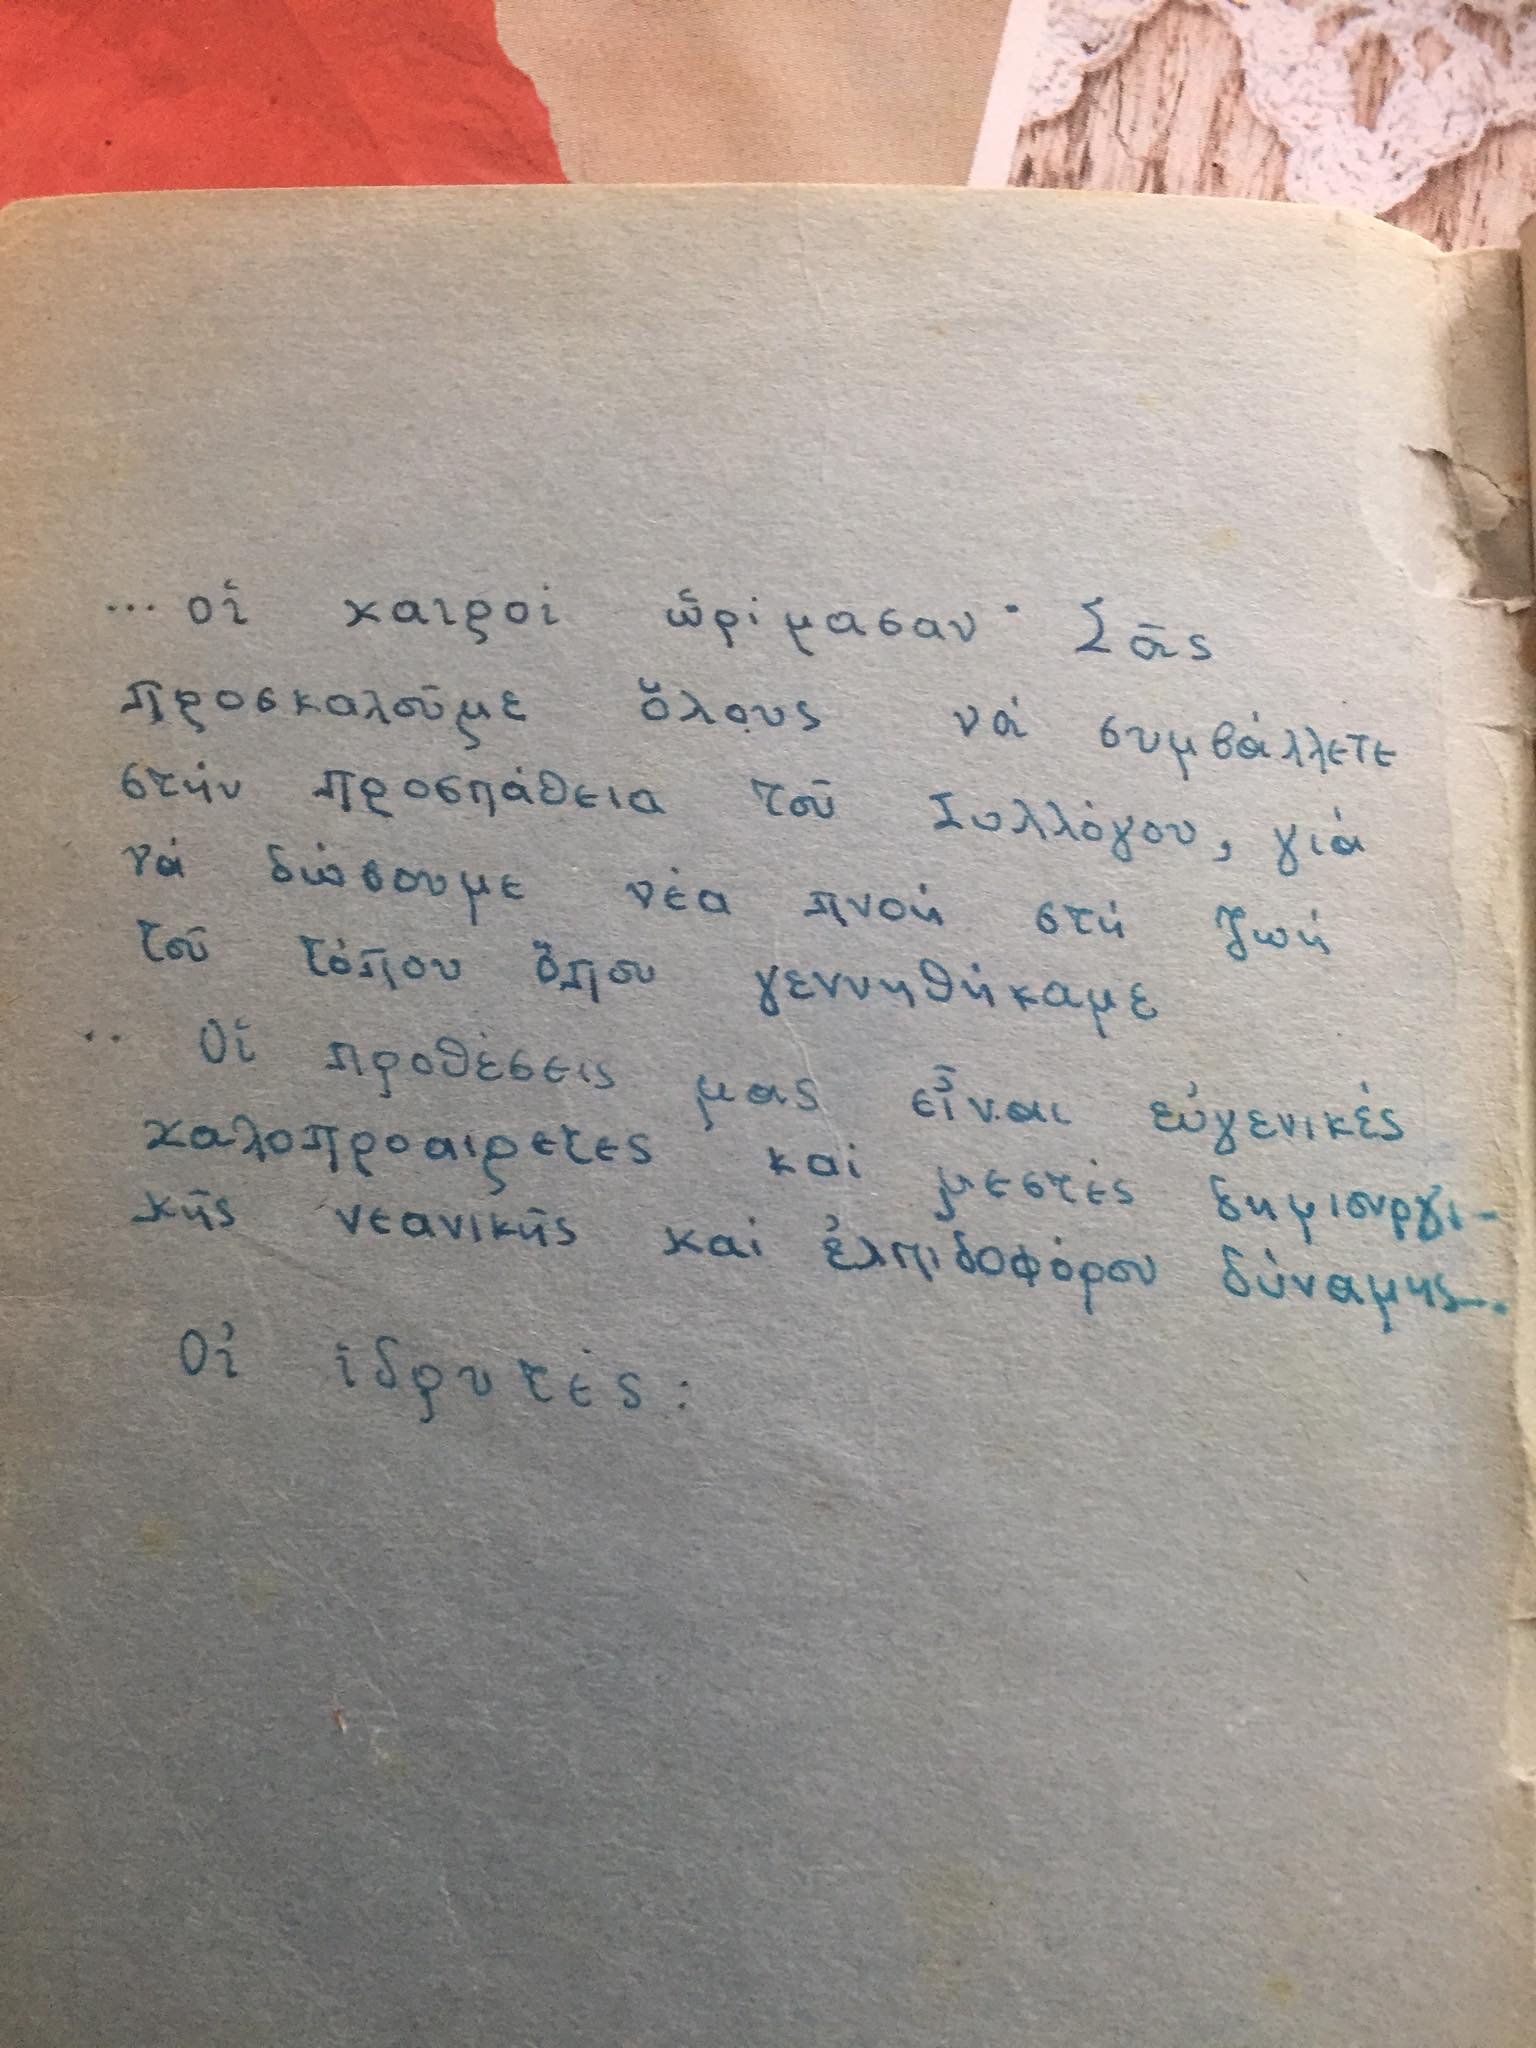 ... οἵ καιροί ὥρίμασαν· Σᾶς
προσκαλοῦμε ὅλους νά συμβάλλετε
στήν προσπάθεια τοῦ Συλλόγου, γιά
νά δώσουμε νέα πνοή στή ζωή
τοῦ τόπου ὅπου γεννηθήκαμε
.. Οἵ προθέσεις μας εἶναι εὐγενικές
καλοπροαιρετες καί μεστές δημιουργι-
κῆς νεανικῆς καί ἐλπιδοφόρου δύναμης—.
Οἱ ἱδρυτές: